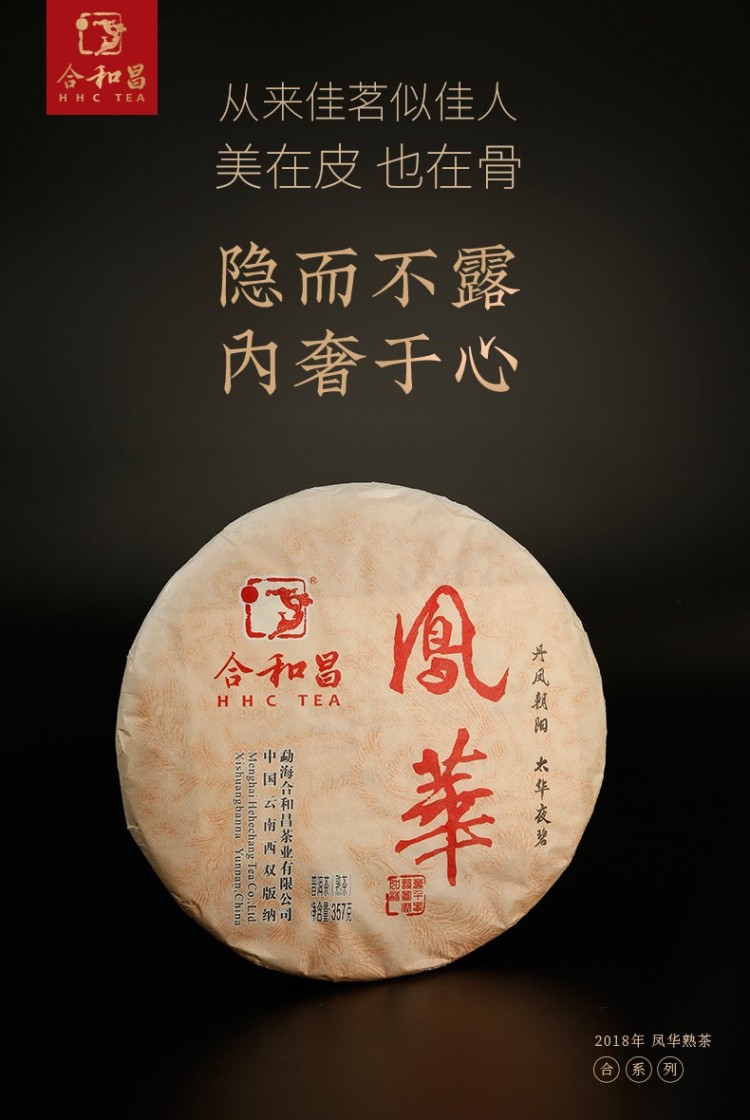 合和昌
HHC TEA
从来佳茗似佳人
美在皮 也在骨
隐而不露
内奢于心
®
合和昌
HHC TEA
鳳華
丹凤朝阳 太华夜碧
勐海合和昌茶业有限公司
中国云南西双版纳
Menghai Hehechang Tea Co.,Ltd.
Xishuangbanna Yunnan,China
普洱茶(熟茶)
净含量:357克
2018年 凤华熟茶
合系列